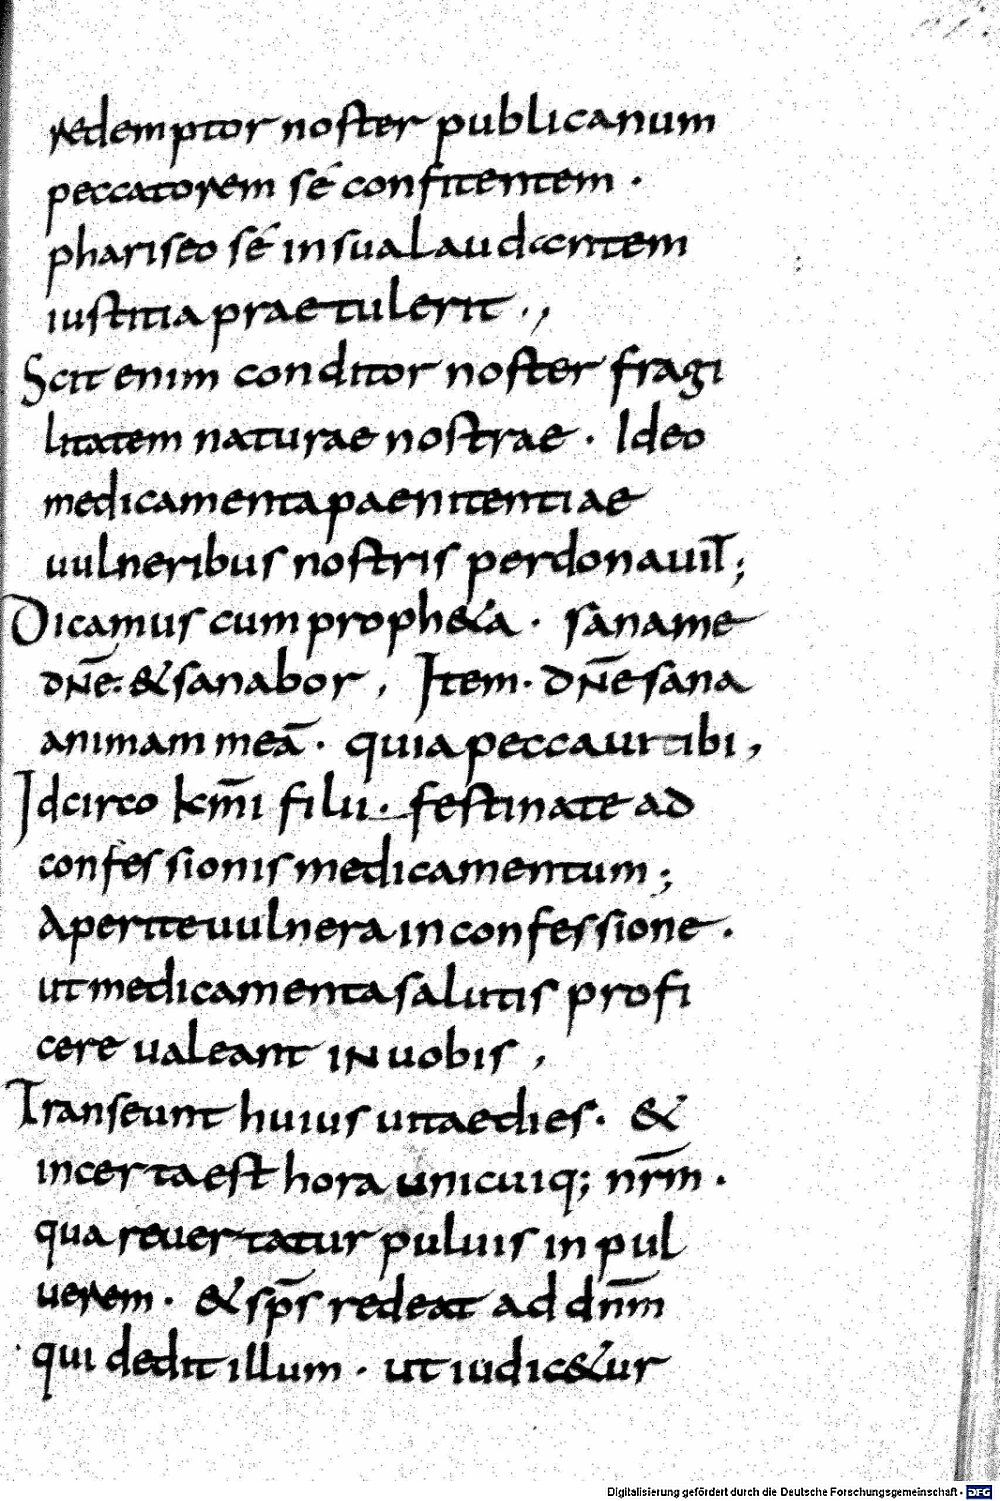 redemptor noster publicanum
peccatorem sé confitentem ·
phariseo sé in sua laudantem
iustitia praetulerit .,
Scit enim conditor noster fragi
litatem naturae nostrae · Ideo
medicamenta paenitentiae
uulneribus nostris perdonauit;
Dicamus cum proph&a · sana me
dnē: & sanabor , Item · dnē sana
animam meā · quia peccaui tibi ,
Idcirco kmī filii · festinate ad
confessionis medicamentum ;
Aperite uulnera in confessione ·
ut medicamenta salutis profi
cere ualeant in uobis ,
Transeunt huius uitae dies · &
incerta est hora unicuiq; nr̄m ·
qua reuertatur puluis in pul
uerem · & sp̄s redeat ad dn̄m
qui dedit illum · ut iudic&ur
Digitalisierung gefördert durch die Deutsche Forschungsgemeinschaft - DFG